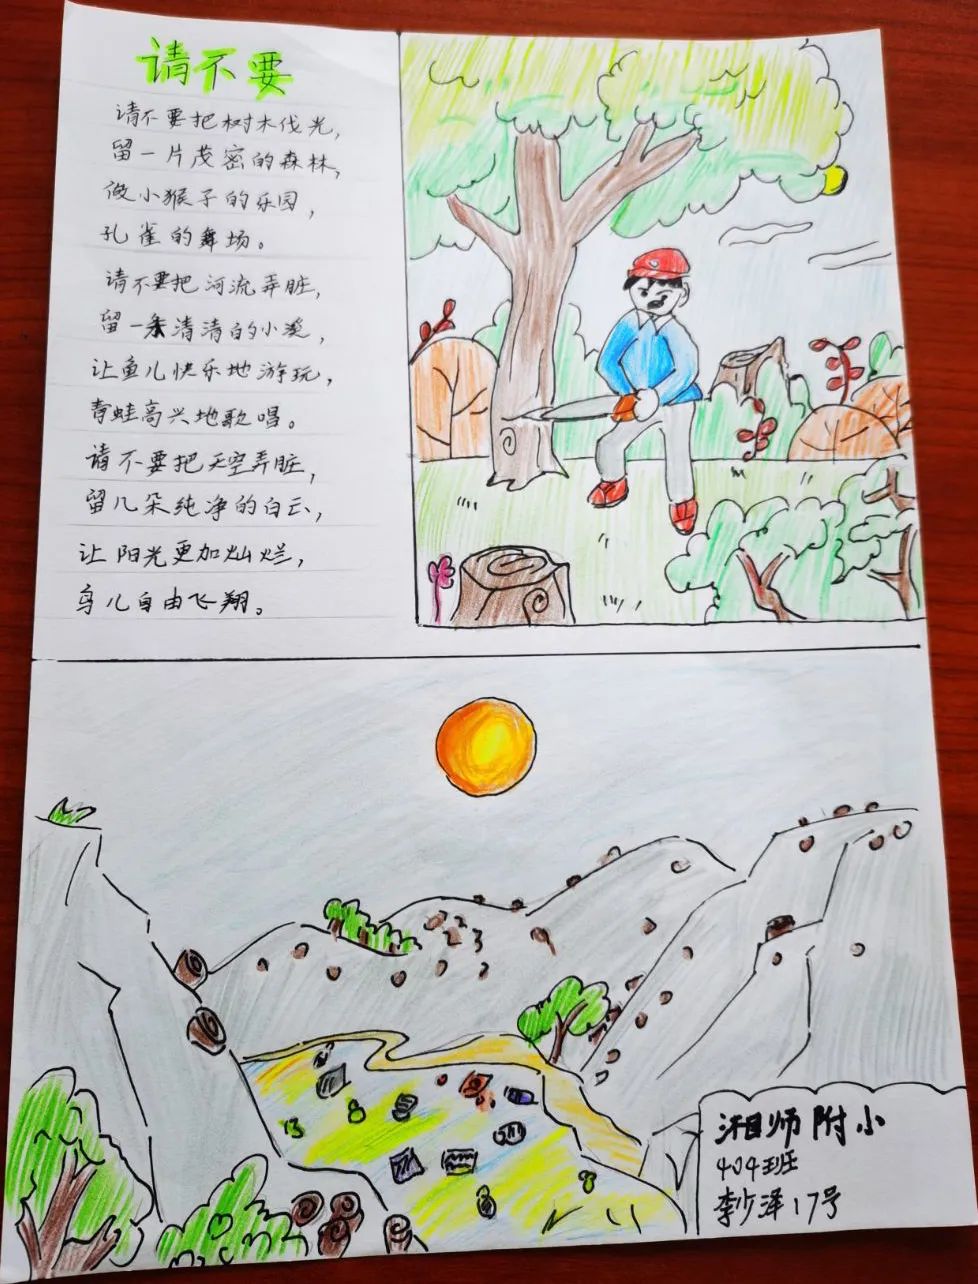 请不要
请不要把树木伐光，
留一片茂密的森林，
做小猴子的乐园，
孔雀的舞场。
请不要把河流弄脏，
留一条清清的小溪，
让鱼儿快乐地游玩，
青蛙高兴地歌唱。
请不要把天空弄脏，
留几朵纯净的白云，
让阳光更加灿烂，
鸟儿自由飞翔。
湘师附小
404班
李少泽17号